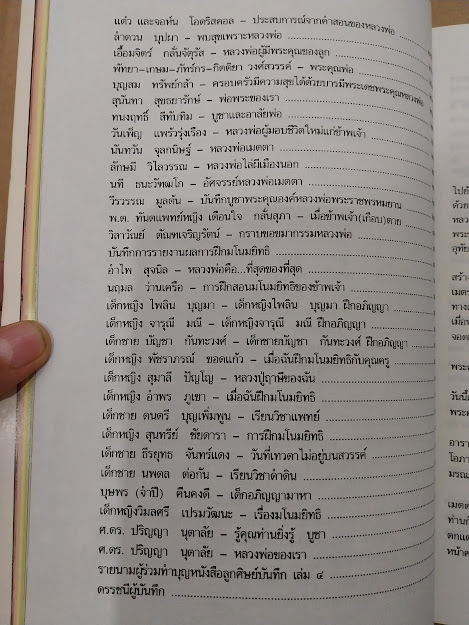 แต๋ว และจอห์น โอดริสคอล – ประสบการณ์จากคำสอนของหลวงพ่อ
ลำดวน บุปผา – พบสุขเพราะหลวงพ่อ
เอื้อมจิตร์ กลั่นจัตุรัส – หลวงพ่อผู้มีพระคุณของลูก
พัทยา-เกษม-ภัทร์กร-กิตติยา วงศ์สวรรค์ – พระคุณพ่อ
บุญสม ทรัพย์กล้า – ครอบครัวมีความสุขได้ด้วยบารมีพระเดชพระคุณหลวงพ่อ
สุนันทา สุขธยารักษ์ – พ่อพระของเรา
ทนงฤทธิ์ สีทับทิม – บูชาและอาลัยพ่อ
วันเพ็ญ แพร้วรุ่งเรือง – หลวงพ่อผู้มอบชีวิตใหม่แก่ข้าพเจ้า
นันทวัน จุลกนิษฐ์ – หลวงพ่อเมตตา
ลักษมี วิไลวรรณ – หลวงพ่อไล่ผีเมืองนอก
นที ธนะวัฒฒโก – อัศจรรย์หลวงพ่อเมตตา
วีรวรรณ มูลตัน – บันทึกบูชาพระคุณองค์หลวงพ่อพระราชพรหมยาน
พ.ต. ทันตแพทย์หญิง เตือนใจ กลั่นสุภา – เมื่อข้าพเจ้า(เกือบ)ตาย
วิลาวัณย์ ตัณฑเจริญรัตน์ – กราบขอขมากรรมหลวงพ่อ
บันทึกการรายงานผลการฝึกมโนมยิทธิ
อำไพ สุจนิล – หลวงพ่อคือ...ที่สุดของที่สุด
นฤมล ว่านเครือ – การฝึกสอนมโนมยิทธิของข้าพเจ้า
เด็กหญิง ไพลิน บุญมา – เด็กหญิงไพลิน บุญมา ฝึกอภิญญา
เด็กหญิง จารุณี มณี – เด็กหญิงจารุณี มณี ฝึกอภิญญา
เด็กชาย บัญชา กันทะวงศ์ – เด็กชายบัญชา กันทะวงศ์ ฝึกอภิญญา
เด็กหญิง พัชราภรณ์ ขอดแก้ว – เมื่อฉันฝึกมโนมยิทธิกับคุณครู
เด็กหญิง สุมาลี ปัญโญ – หลวงปู่ฤาษีของฉัน
เด็กหญิง อำพร ภูเขา – เมื่อฉันฝึกมโนมยิทธิ
เด็กชาย ดนตรี บุญเพิ่มพูน – เรียนวิชาแพทย์
เด็กหญิง สุนทรีย์ ชัยดารา – การฝึกมโนมยิทธิ
เด็กชาย ธีรยุทธ จันทร์แดง – วันที่เทวดาไม่อยู่บนสวรรค์
เด็กชาย นพดล ต่อกัน – เรียนวิชาดำดิน
บุษพร (จำปี) คืนคงดี – เด็กอภิญญามาหา
เด็กหญิงวิมลศรี เปรมวัฒนะ – เรื่องมโนมยิทธิ
ศ.ดร. ปริญญา นุตาลัย – รู้คุณท่านยิ่งรู้ บูชา
ศ.ดร. ปริญญา นุตาลัย – หลวงพ่อของเรา
รายนามผู้ร่วมทำบุญหนังสือลูกศิษย์บันทึก เล่ม ๔
ดรรชนีผู้บันทึก